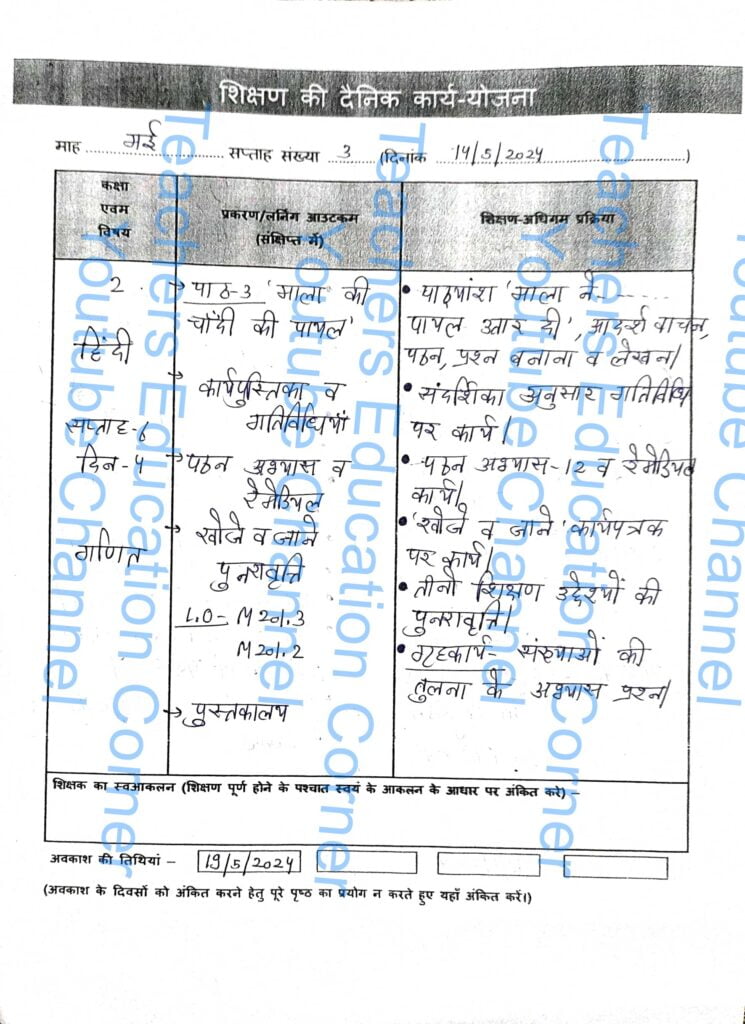 शिक्षण की दैनिक कार्य-योजना
माह मई सप्ताह संख्या 3 (दिनांक 14/5/2024)
कक्षा
एवम
विषय
प्रकरण/लर्निग आउटकम
(संक्षिप्त में)
शिक्षण-अधिगम प्रक्रिया
2
हिंदी
सप्ताह-6
दिन-4
गणित
→ पाठ-3 'माला की
चाँदी की पायल'
→ कार्यपुस्तिका व
गतिविधियाँ
→ पठन अभ्यास व
रेमेडियल
→ खोजे व जाने
पुनरावृत्ति
L.O- M 201.3
M 201.2
→ पुस्तकालय
• पाठ्यांश 'माला ने------
पायल उतार दी', आदर्श वाचन,
पठन, प्रश्न बनाना व लेखन।
• संदर्शिका अनुसार गतिविधि
पर कार्य।
• पठन अभ्यास-12 व रेमेडियल
कार्य।
• 'खोजे व जाने' कार्यपत्रक
पर कार्य।
• तीनो शिक्षण उद्देश्यों की
पुनरावृत्ति।
• गृहकार्य- संख्याओं की
तुलना के अभ्यास प्रश्न।
शिक्षक का स्वआकलन (शिक्षण पूर्ण होने के पश्चात स्वयं के आकलन के आधार पर अंकित करे) –
अवकाश की तिथियां – 19/5/2024
(अवकाश के दिवसों को अंकित करने हेतु पूरे पृष्ठ का प्रयोग न करते हुए यहाँ अंकित करें।)
Teachers Education Corner
Youtube Channel
Teachers Education Corner
Youtube Channel
Teachers Education Corner
Youtube Channel
Teachers Education Corner
Youtube Channel